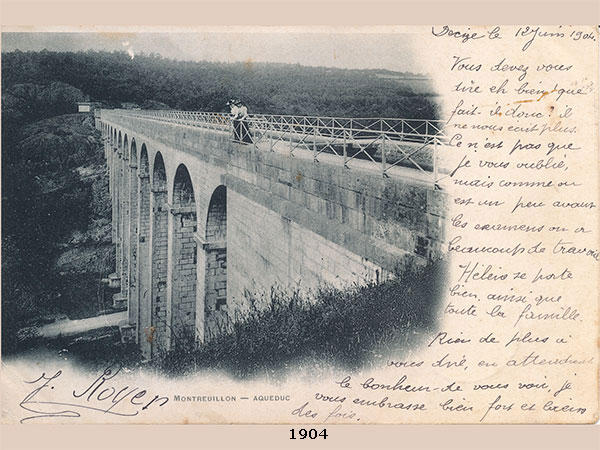 Decize le 12 Juin 1904.
Vous devez vous
dire eh bien que
fait-il donc? il
ne nous écrit plus.
Ce n'est pas que
je vous oublie,
mais comme on
est un peu avant
les examens on a
beaucoup de travail
se porte
bien, ainsi que
toute la famille.
Rien de plus à
vous dire, en attendant
le bonheur de vous voir, je
vous embrasse bien fort et bien
des fois.
J. Royer
MONTREUILLON — AQUEDUC
1904